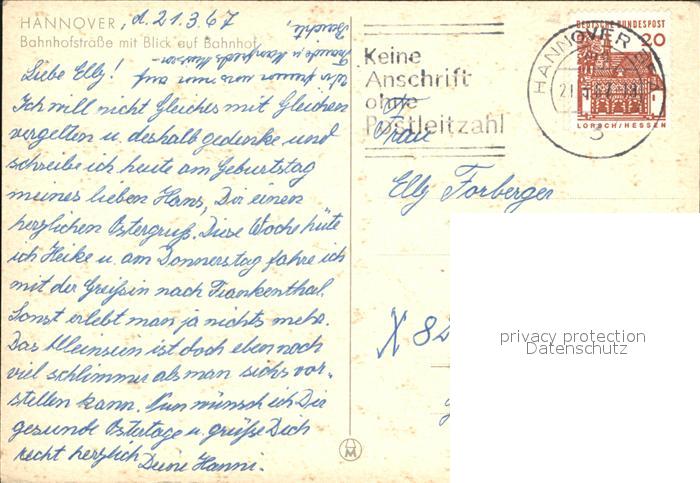 HANNOVER, d. 21.3.67
Bahnhofstraße mit Blick auf Bahnhof
Liebe Elly!
Ich will nicht Gleiches mit Gleichem
vergelten u. deshalb gedenke und
schreibe ich heute am Geburtstag
meines lieben Hans, Dir einen
herzlichen Ostergruß. Diese Woche hüte
ich Heike u. am Donnerstag fahre ich
mit der Greißin nach Frankenthal.
Sonst erlebt man ja nichts mehr.
Das Alleinsein ist doch eben noch
viel schlimmer als man sichs vor-
stellen kann. Nun wünsch ich Dir
gesunde Ostertage u. grüße Dich
recht herzlich Deine Hanni.
Keine
Anschrift
ohne
Postleitzahl
HANNOVER
3
DEUTSCHE BUNDESPOST
20
LORSCH/HESSEN
Frau
Elly Forberger
X 82
privacy protection
Datenschutz